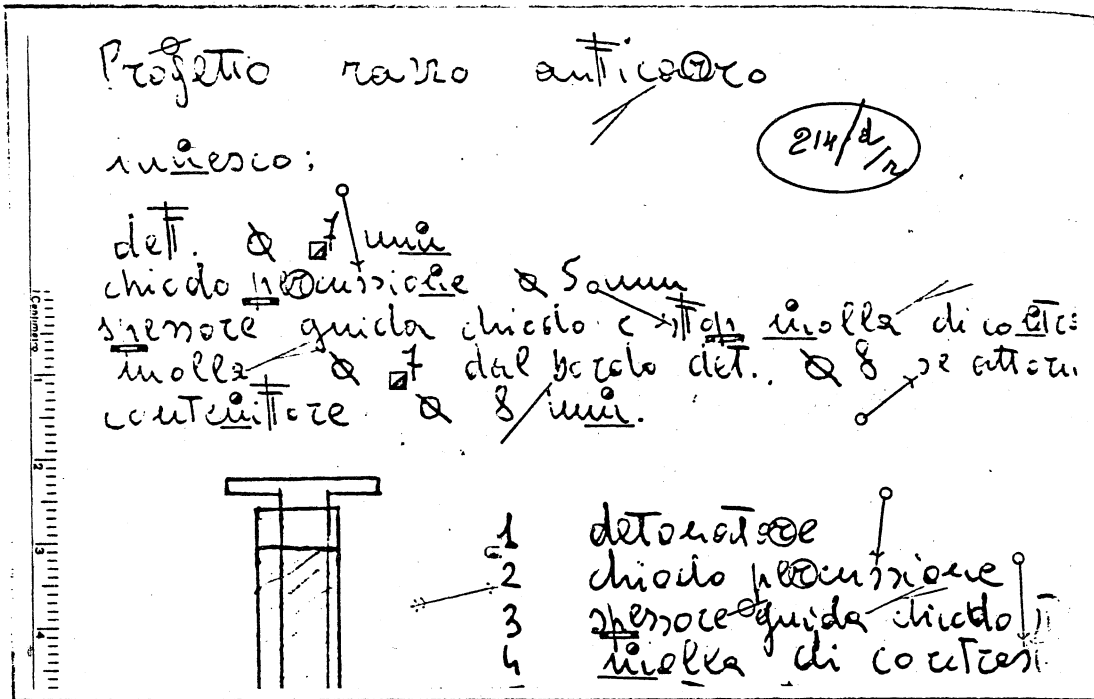 Progetto razzo anticarro
214/d/r
innesco:
det. Ø 7 mm
chiodo percussione Ø 5 mm
spessore guida chiodo e stop molla di contr
molla Ø 7 dal bordo det. Ø 8
contenitore Ø 8 mm.
1 detonatore
2 chiodo percussione
3 spessore guida chiodo
4 molla di contras
Centimetro 1
2
3
4